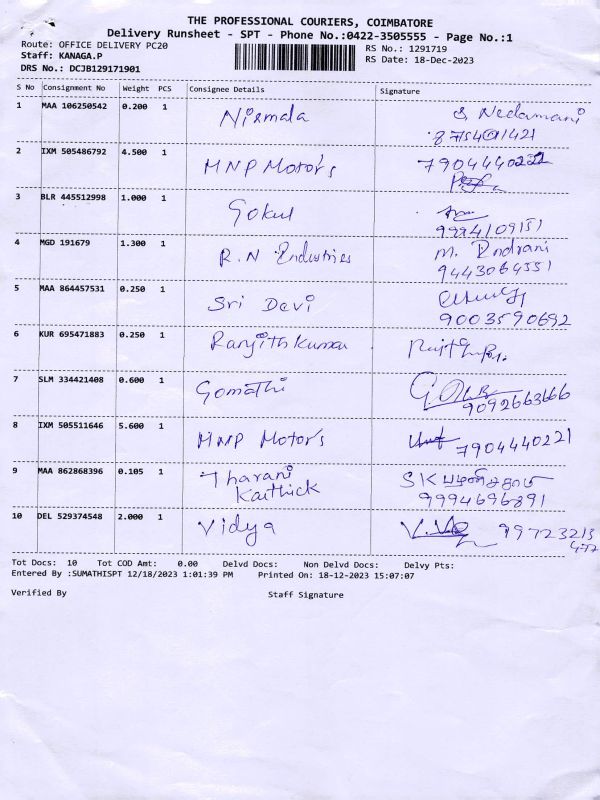 THE PROFESSIONAL COURIERS, COIMBATORE
Delivery Runsheet - SPT - Phone No.:0422-3505555 - Page No.:1
Route: OFFICE DELIVERY PC20 RS No.: 1291719
Staff: KANAGA.P RS Date: 18-Dec-2023
DRS No.: DCJB129171901
S No Consignment No Weight PCS Consignee Details Signature
1 MAA 106250542 0.200 1 Nirmala S Nedamani
2 IXM 505486792 4.500 1 MNP Motor's
3 BLR 445512998 1.000 1 Gokul
9994109151
4 MGD 191679 1.300 1 R.N Industries M. Indrani
9443064551
5 MAA 864457531 0.250 1 Sri Devi
9003590692
6 KUR 695471883 0.250 1 Ranjithkumar
7 SLM 334421408 0.600 1 Gomathi
9092663666
8 IXM 505511646 5.600 1 MNP Motor's 7904440221
9 MAA 862868396 0.105 1 Tharani SK
Karthick 9994696891
10 DEL 529374548 2.000 1 Vidya 99723213
477
Tot Docs: 10 Tot COD Amt: 0.00 Delvd Docs: Non Delvd Docs: Delvy Pts:
Entered By :SUMATHISPT 12/18/2023 1:01:39 PM Printed On: 18-12-2023 15:07:07
Verified By Staff Signature